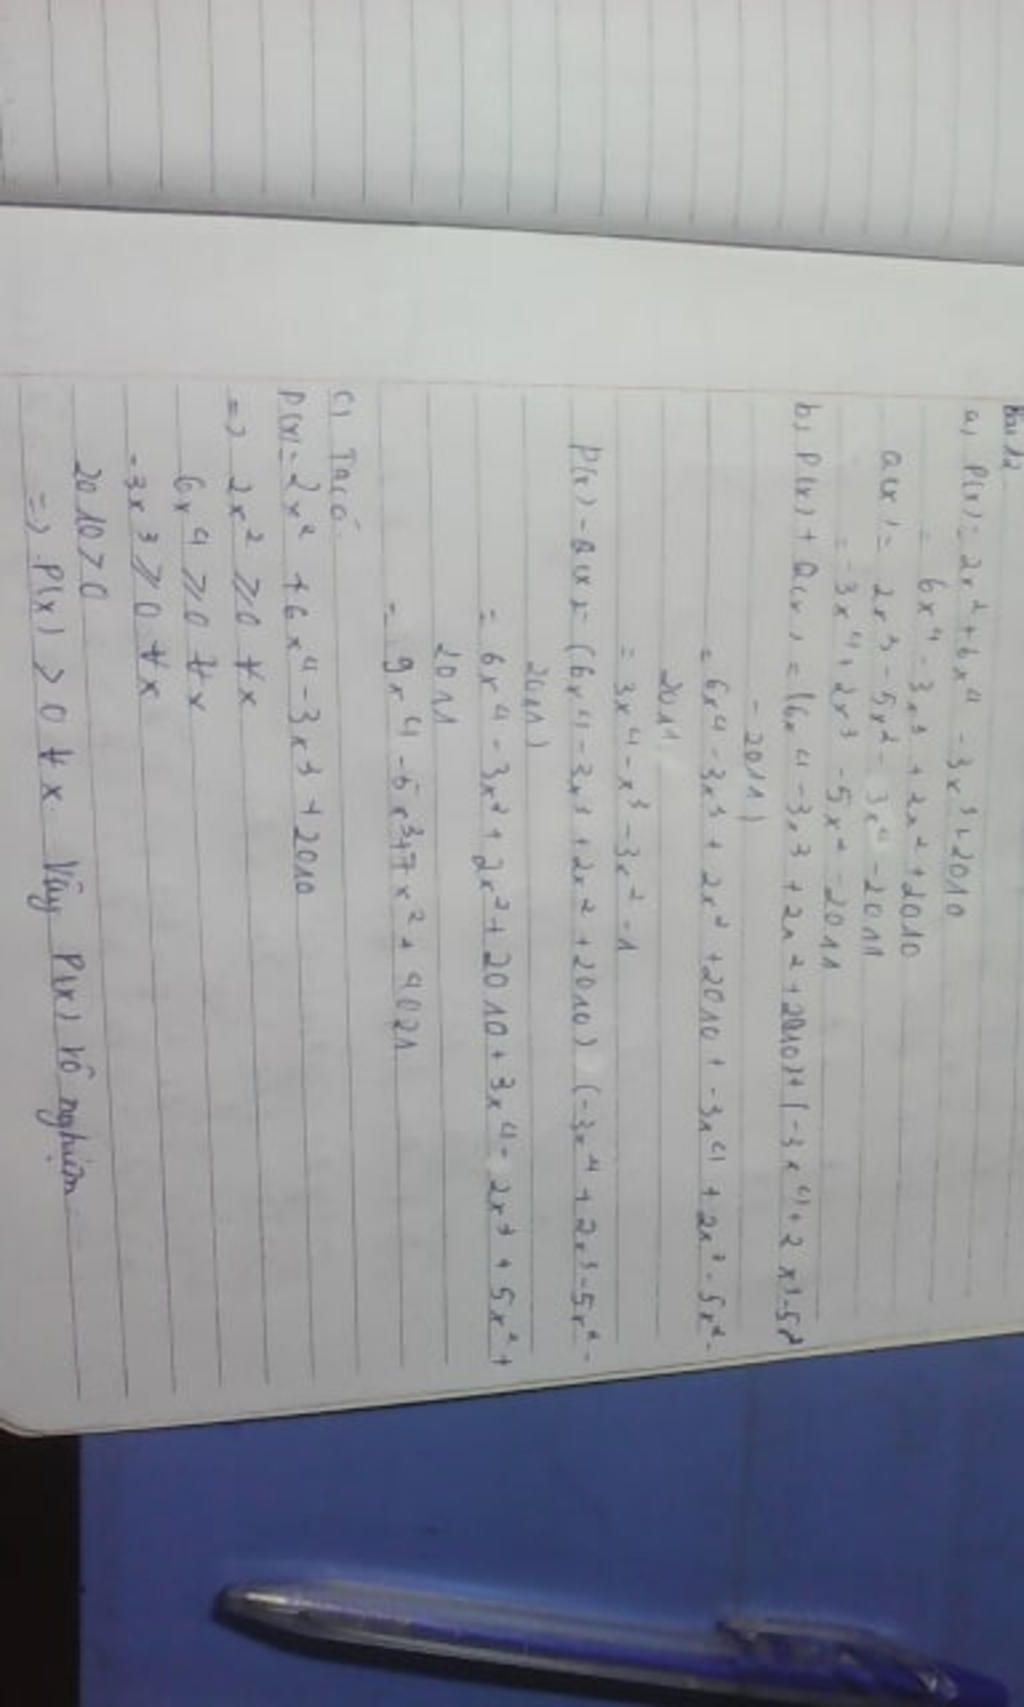 Bài 12
a, P(x) = 2x² + 6x⁴ - 3x³ + 2010
= 6x⁴ - 3x³ + 2x² + 2010
Q(x) = 2x³ - 5x² - 3x⁴ - 2011
= -3x⁴ + 2x³ - 5x² - 2011
b, P(x) + Q(x) = (6x⁴ - 3x³ + 2x² + 2010) + (-3x⁴) + 2x³-5x²
- 2011)
= 6x⁴ - 3x³ + 2x² + 2010 + -3x⁴ + 2x³ - 5x² -
2011
= 3x⁴ - x³ - 3x² - 1
P(x) - Q(x) = (6x⁴ - 3x³ + 2x² + 2010) (-3x⁴ + 2x³ - 5x² -
2011)
= 6x⁴ - 3x² + 2x² + 2010 + 3x⁴ - 2x³ + 5x² +
2011
= 9x⁴ - 5x³ + 7x² + 4021
c) Ta có
P(x) = 2x² + 6x⁴ - 3x³ + 2010
=> 2x² ⩾ 0 ∀x
6x⁴ ⩾ 0 ∀x
-3x³ ⩾ 0 ∀x
2010 > 0
=> P(x) > 0 ∀x. Vậy P(x) vô nghiệm